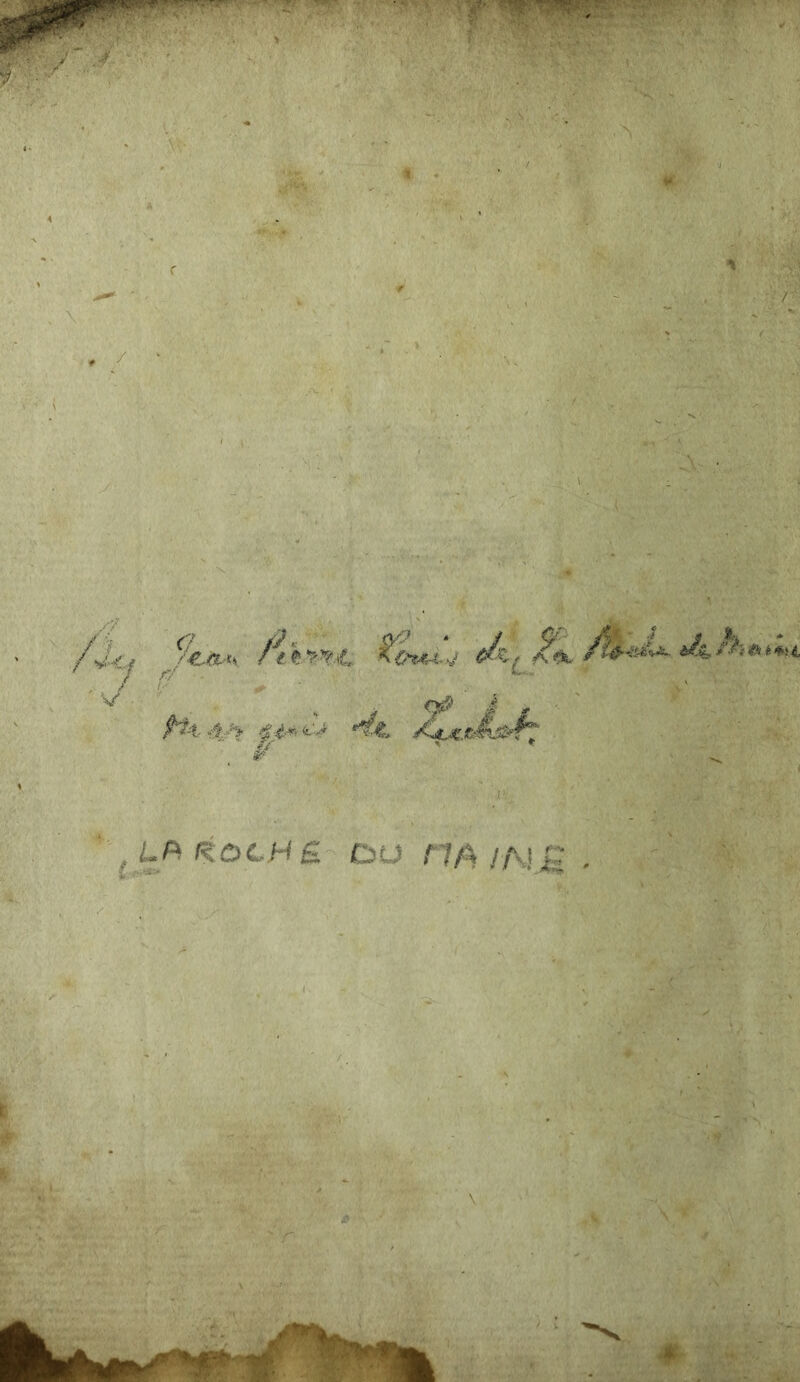 Jean Pierre Louis de La Roche du Maine
Marquis de Luchet.
LA ROCHE DU MAINE .